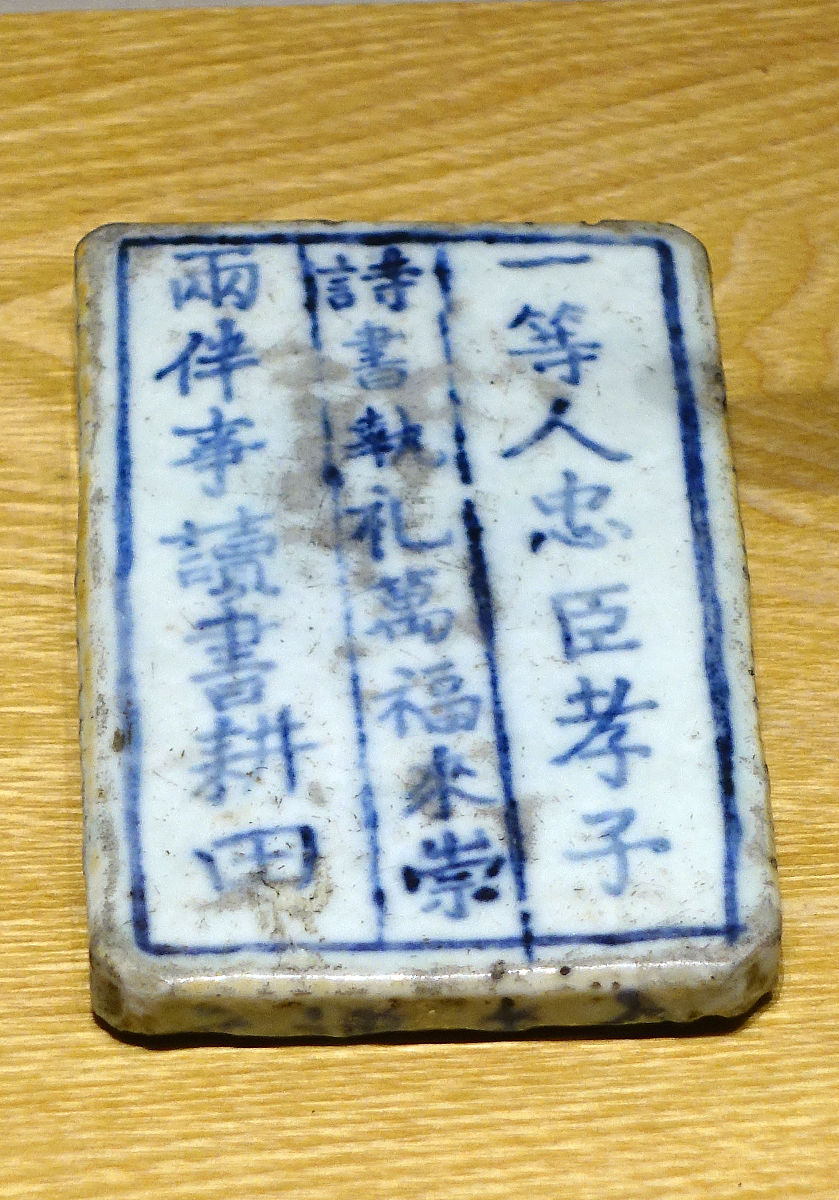 一等人忠臣孝子
詩書執礼萬福來崇
兩伴事讀書耕田